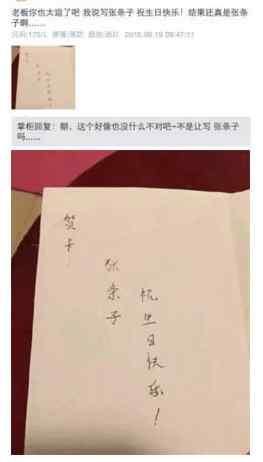 老板你也太逗了吧 我说写张条子 祝生日快乐！结果还真是张条
子啊......
2015.09.19 09:47:11
掌柜回复：额，这个好像也没什么不对吧~不是让写 张条子
吗......
贺卡
张条子
祝生日快乐！